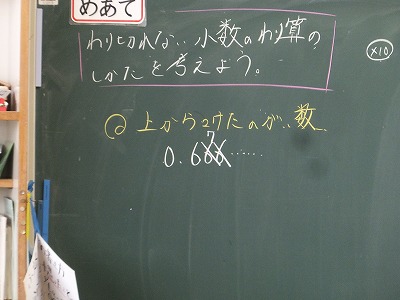 めあて
わり切れない小数のわり算の
しかたを考えよう。
×10
上から2けたのがい数
7
0.666……